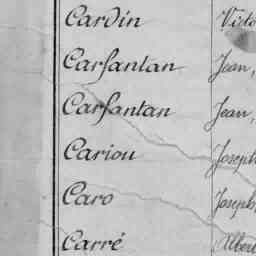 Cardin Victo
Carfantan Jean,
Carfantan Jean,
Cariou Joseph
Caro Joseph
Carré Alber